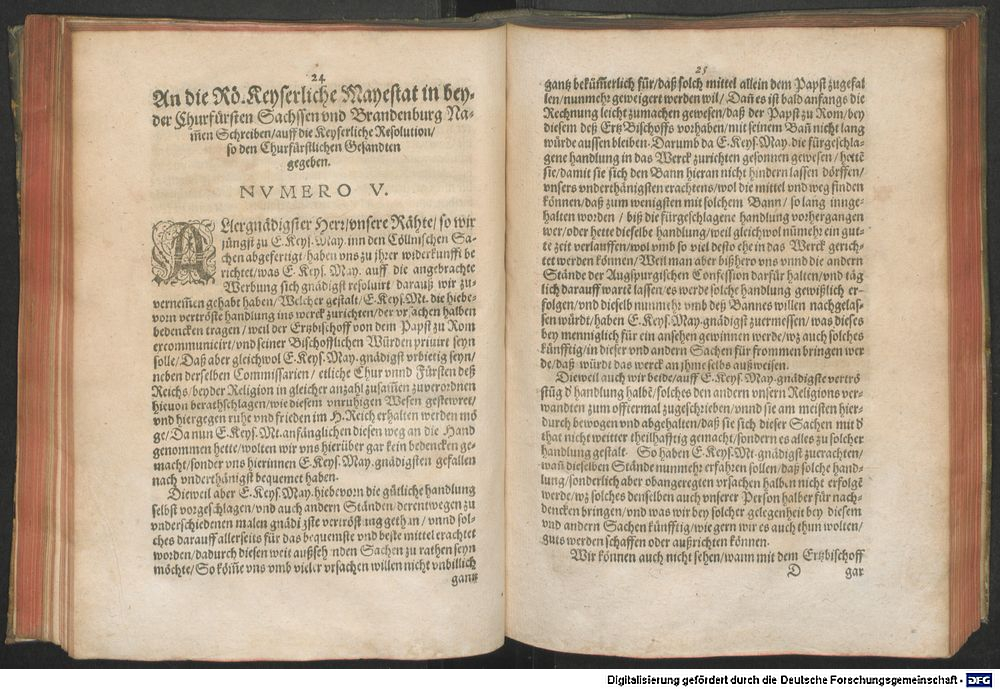 24
An die Rö. Keyserliche Mayestat in bey-
der Churfürsten Sachssen vnd Brandenburg Na-
men Schreiben/auff die Keyserliche Resolution/
so den Churfürstlichen Gesandten
gegeben.
NVMERO V.
ALlergnädigster Herr/vnsere Rähte/so wir
jüngst zu E. Keys. May. inn den Cöllnischen Sa-
chen abgefertigt/haben vns zu jhrer widerkunfft be
richtet/was E. Keys. May. auff die angebrachte
Werbung sich gnädigst resoluirt/darauß wir zu-
vernem̃en gehabt haben/Welcher gestalt/E. Keys. Mt. die hiebe-
vorn vertröste handlung ins werck zurichten/der vrsachen halben
bedencken tragen/weil der Ertzbischoff von dem Papst zu Rom
excommunicirt/vnd seiner Bischofflichen Würden priuirt seyn
solle/Daß aber gleichwol E. Keys. May. gnädigst vrbietig seyn/
neben derselben Commissarien/etliche Chur vnnd Fürsten deß
Reichs/beyder Religion in gleicher anzahl zusam̃en zuverordnen
hieuon berathschlagen/wie diesem vnruhigen Wesen gestewret/
vnd hiergegen ruhe vnd frieden im H. Reich erhalten werden mö
ge/Da nun E. Keys. Mt. anfänglichen diesen weg an die Hand
genommen hette/wolten wir vns hierüber gar kein bedencken ge-
macht/sonder vns hierinnen E. Keys. May. gnädigsten gefallen
nach vnderthänigst bequemet haben.
Dieweil aber E. Keys. May. hiebevorn die gütliche handlung
selbst vorgeschlagen/vnd auch andern Ständen/derentwegen zu
vnderschiedenen malen gnädigste vertröstung gethan/vnnd sol-
ches darauff allerseits für das bequemste vnd beste mittel erachtet
worden/dadurch diesen weit außsehenden Sachen zu rathen seyn
möchte/So köm̃e vns vmb vieler vrsachen willen nicht vnbillich
gantz
25
gantz beküm̃erlich für/daß solch mittel allein dem Papst zugefal
len/nunmehr geweigert werden wil/Dañ es ist bald anfangs die
Rechnung leicht zumachen gewesen/daß der Papst zu Rom/bey
diesem deß Ertz Bischoffs vorhaben/mit seinem Bañ nicht lang
würde aussen bleiben. Darumb da E. Keys. May. die fürgeschla-
gene handlung in das Werck zurichten gesonnen gewesen/hette
sie/damit sie sich den Bann hieran nicht hindern lassen dörffen/
vnsers vnderthänigsten erachtens/wol die mittel vnd weg finden
können/daß zum wenigsten mit solchem Bann/so lang innge-
halten worden/biß die fürgeschlagene handlung vorhergangen
wer/oder hette dieselbe handlung/weil gleichwol nũmehr ein gut-
te zeit verlauffen/wol vmb so viel desto ehe in das Werck gerich-
tet werden können/Weil man aber bißhero vns vnnd die andern
Stände der Augspurgischen Confession darfür halten/vnd täg
lich darauff wartẽ lassen/es werde solche handlung gewißlich er-
folgen/vnd dieselb nunmehr vmb deß Bannes willen nachgelas-
sen würdt/haben E. Keys. May. gnädigst zuermessen/was dieses
bey menniglich für ein ansehen gewinnen werde/wz auch solches
künfftig/in dieser vnd andern Sachen für frommen bringen wer
de/daß würdt das werck an jhme selbs außweisen.
Dieweil auch wir beide/auff E. Keys. May. gnädigste vertrö
stũg d' handlung halbẽ/solches den andern vnsern Religions ver-
wandten zum offtermal zugeschrieben/vnnd sie am meisten hier-
durch bewogen vnd abgehalten/daß sie sich dieser Sachen mit d'
that nicht weitter theilhafftig gemacht/sondern es alles zu solcher
handlung gestalt. So haben E. Keys. Mt. gnädigst zuerachten/
wañ dieselben Stände nunmehr erfahren sollen/daß solche hand-
lung/sonderlich aber obangeregten vrsachen halben nicht erfolgẽ
werde/wz solches denselben auch vnserer Person halber für nach-
dencken bringen/vnd was wir bey solcher gelegenheit bey diesem
vnd andern Sachen künfftig/wie gern wir es auch thun wolten/
guts werden schaffen oder außrichten können.
Wir können auch nicht sehen/wann mit dem Ertzbischoff
D gar
Digitalisierung gefördert durch die Deutsche Forschungsgemeinschaft - DFG